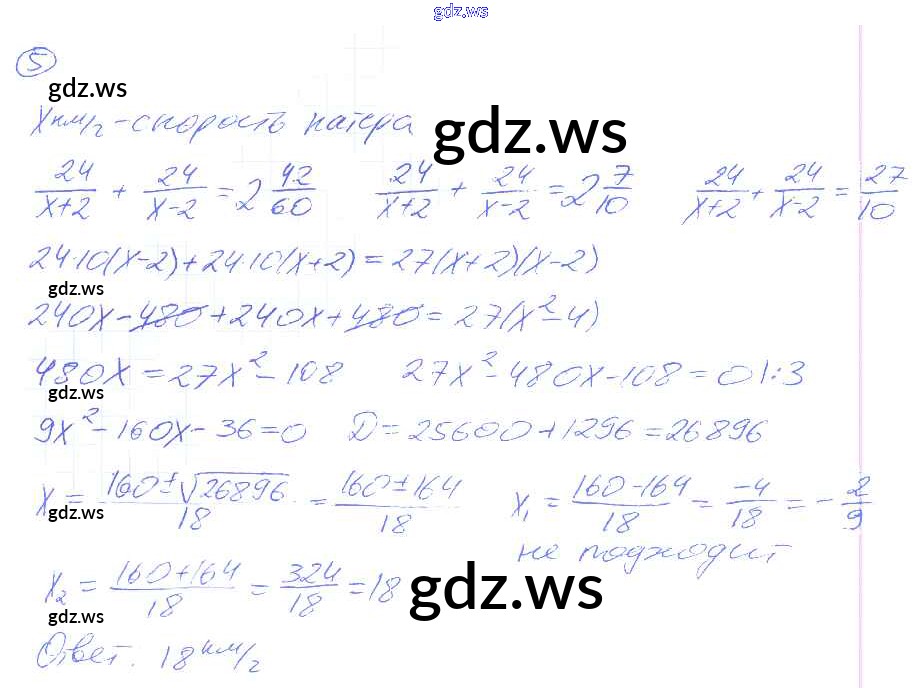 gdz.ws
5
gdz.ws
X км/г - скорость катера
gdz.ws
24/(x+2) + 24/(x-2) = 2 42/60   24/(x+2) + 24/(x-2) = 2 7/10   24/(x+2) + 24/(x-2) = 27/10
24·10(x-2)+24·10(x+2)=27(x+2)(x-2)
gdz.ws
240x-480+240x+480=27(x²-4)
480x=27x²-108   27x²-480x-108=0 |:3
gdz.ws
9x²-160x-36=0   D=25600+1296=26896
x = (160±√26896)/18 = (160±164)/18   x₁ = (160-164)/18 = -4/18 = -2/9
gdz.ws
не подходит
x₂ = (160+164)/18 = 324/18 = 18
gdz.ws
gdz.ws
Ответ. 18 км/г